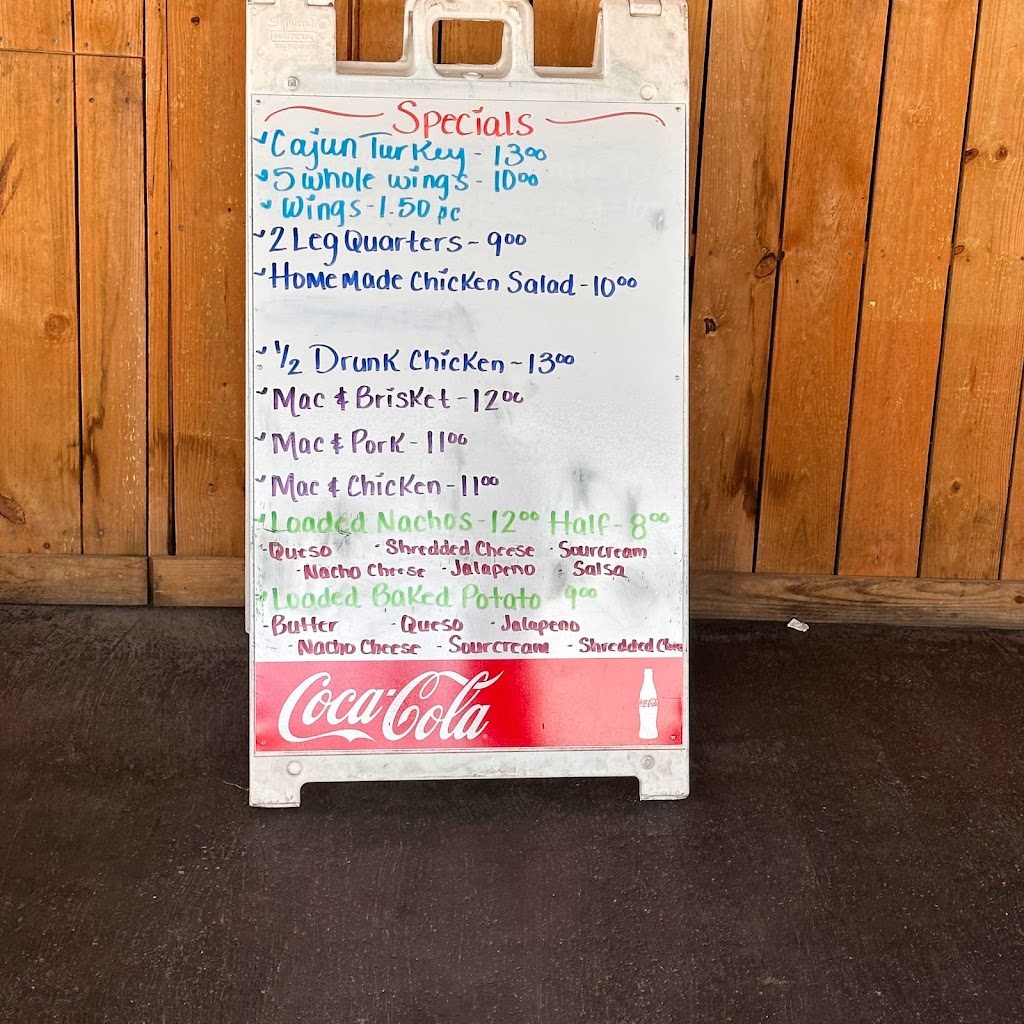 Specials
Cajun Turkey - 13⁰⁰
5 whole wings - 10⁰⁰
Wings - 1.50 pc
2 Leg Quarters - 9⁰⁰
Homemade Chicken Salad - 10⁰⁰
1/2 Drunk Chicken - 13⁰⁰
Mac & Brisket - 12⁰⁰
Mac & Pork - 11⁰⁰
Mac & Chicken - 11⁰⁰
Loaded Nachos - 12⁰⁰ Half - 8⁰⁰
- Queso - Shredded Cheese - Sourcream
- Nacho Cheese - Jalapeno - Salsa
Loaded Baked Potato - 9⁰⁰
- Butter - Queso - Jalapeno
- Nacho Cheese - Sourcream - Shredded Cheese
Coca-Cola
Coca-Cola